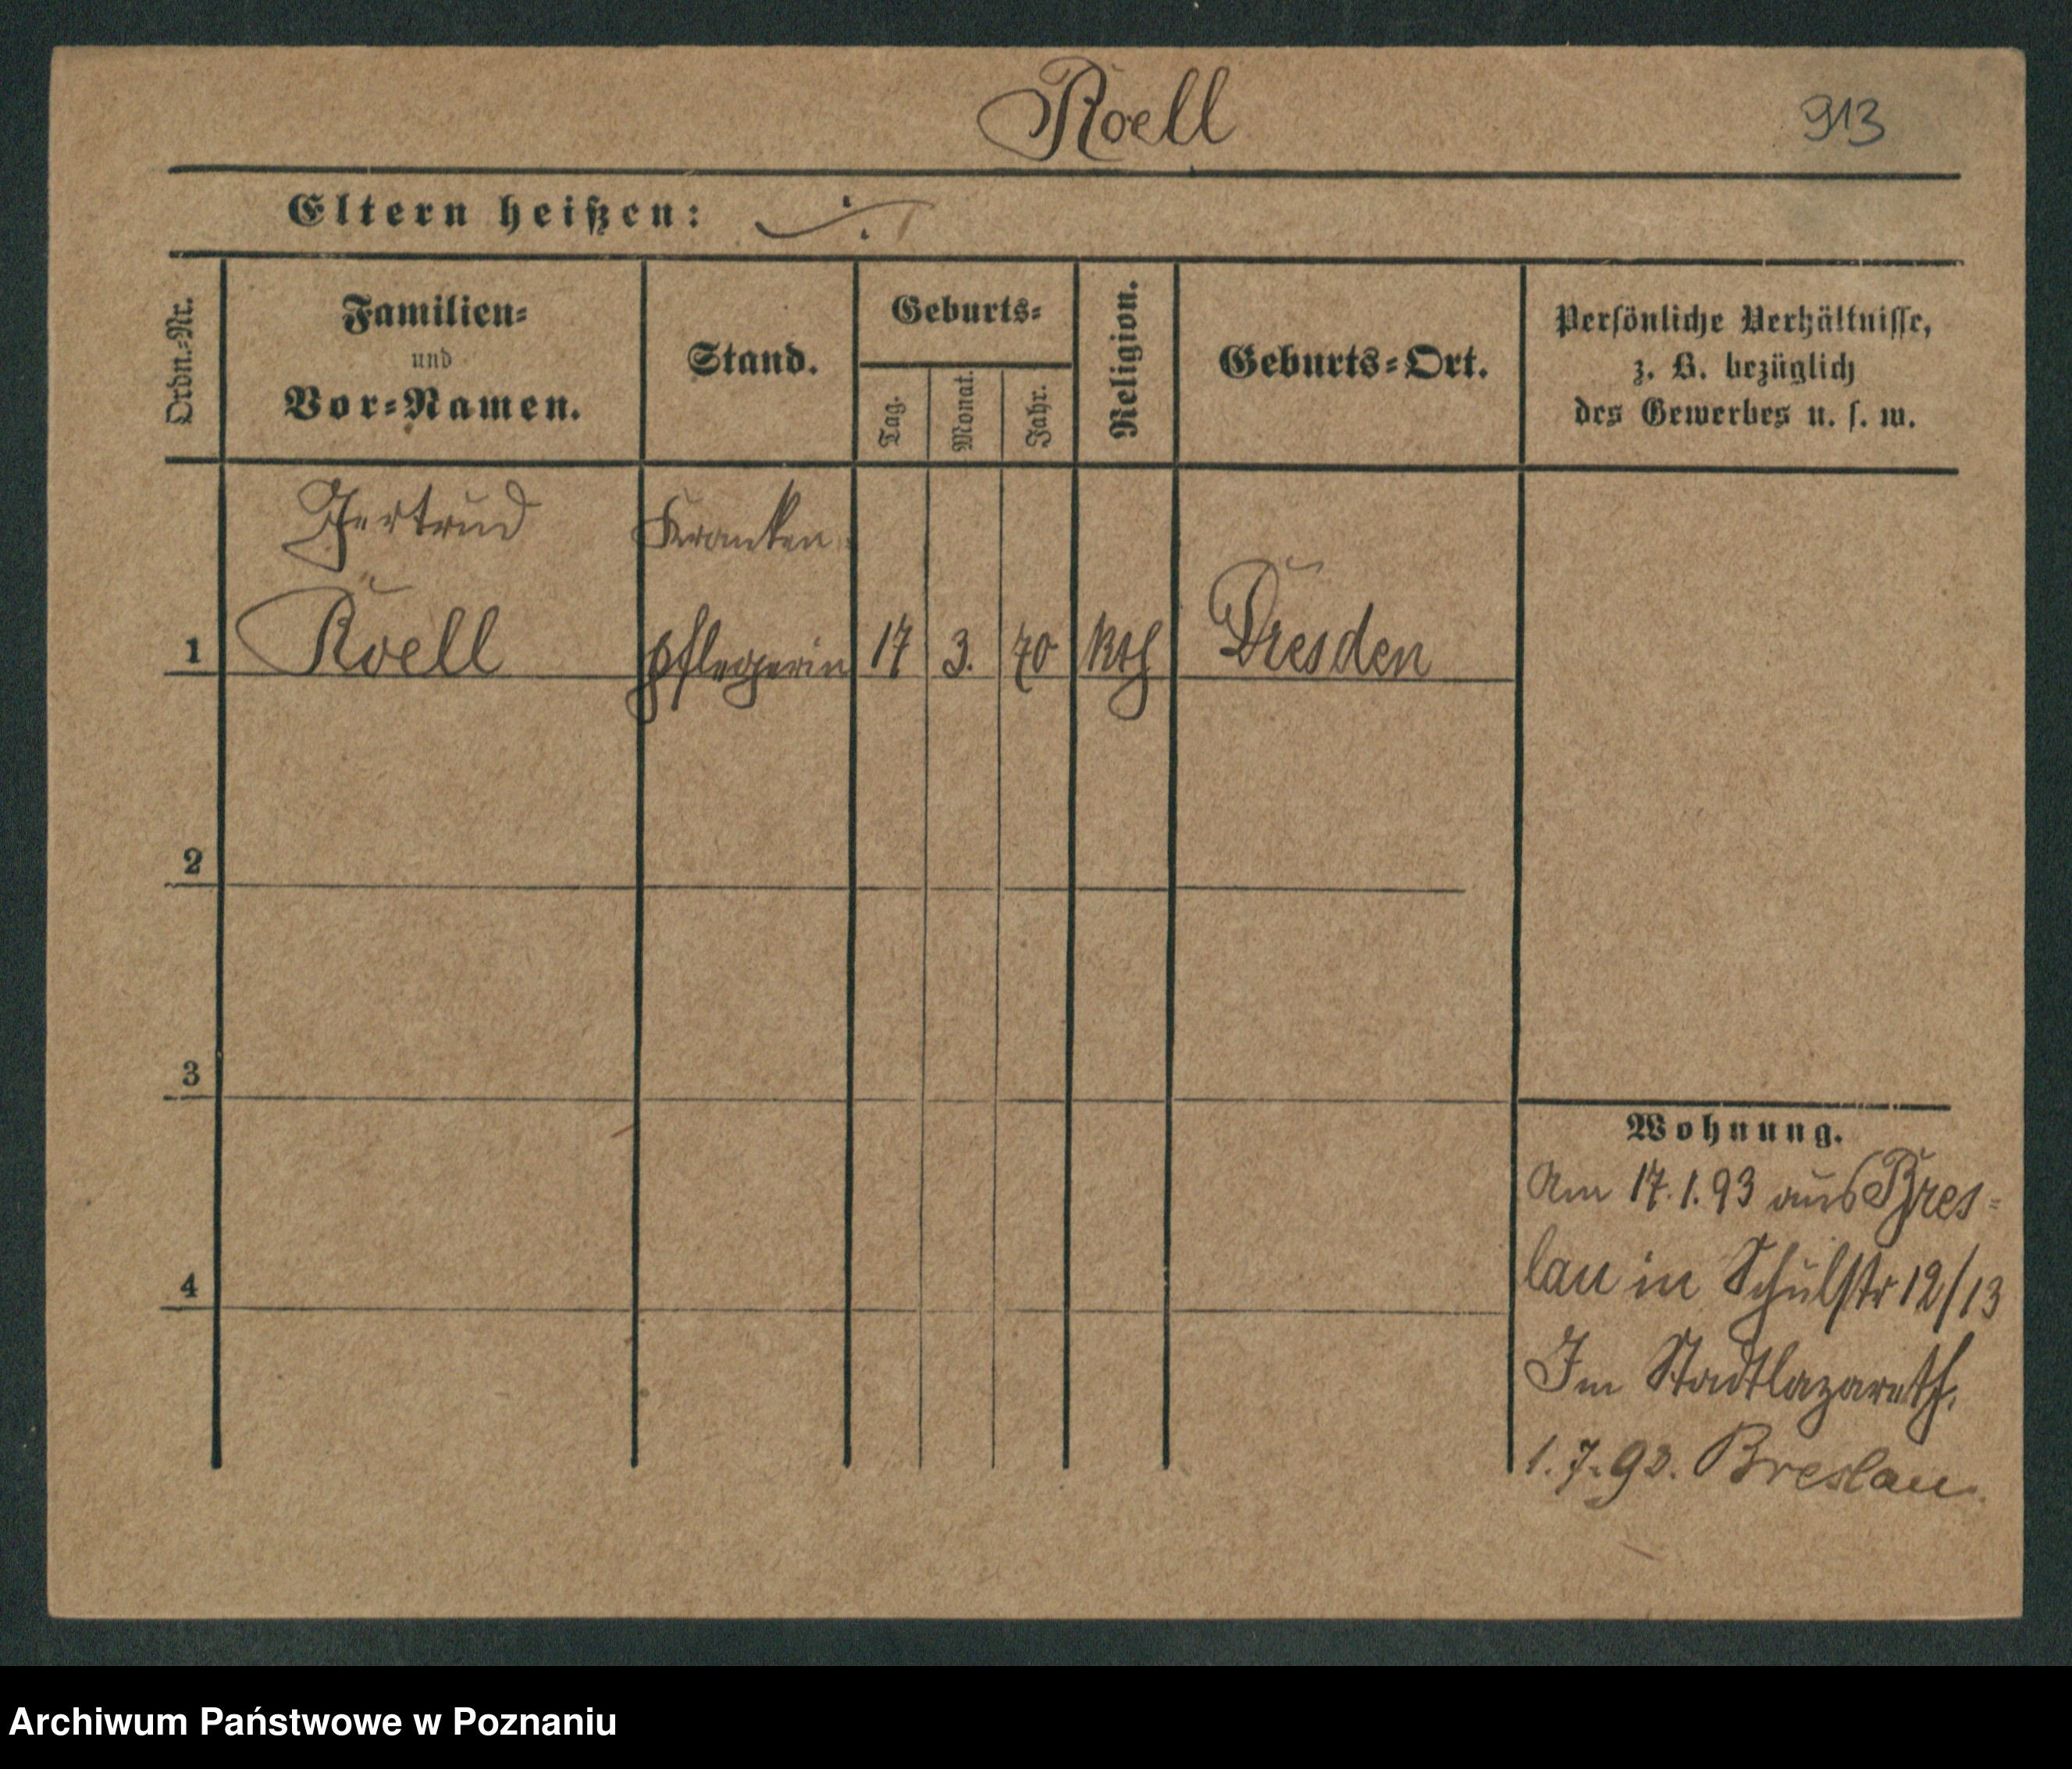 Roell 913
Eltern heißen: ./.
Ordn.-Nr.
Familien-
und
Vor-Namen.
Stand.
Geburts-
Tag.
Monat.
Jahr.
Religion.
Geburts-Ort.
Persönliche Verhältnisse,
z. B. bezüglich
des Gewerbes u. s. w.
Gertrud Kranken
1 Roell pflegerin 17 3. 70 kth Dresden
2
3
4
Wohnung.
Am 17.1.93 aus Bres-
lau in Schulstr 12/13
Im Stadtlazareth.
1.7.93. Breslau.
Archiwum Państwowe w Poznaniu